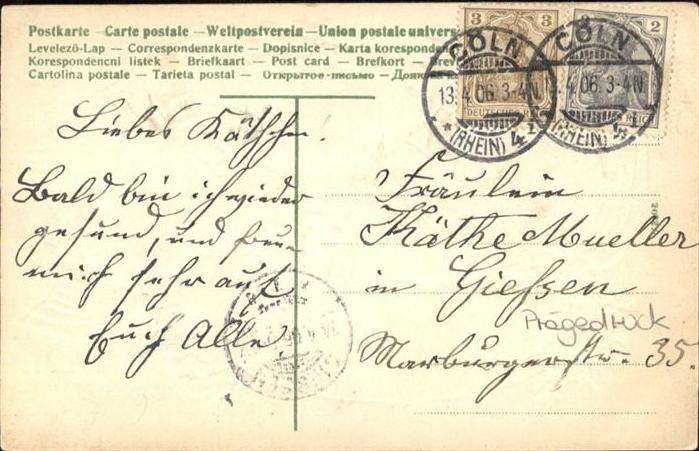 Postkarte — Carte postale — Weltpostverein — Union postale univers
Levelező-Lap — Correspondenzkarte — Dopisnice — Karta korespond
Korespondencni listek — Briefkaart — Post card — Brefkort — Brev
Cartolina postale — Tarieta postal — Открытое письмо — Дописна
3 3
DEUTSCHES
2
REICH
CÖLN
13.4.06.3-4N
*(RHEIN) 4
CÖLN
.4.06.3-4N
*(RHEIN) 4
Liebes Käthchen!
Bald bin ich wieder
gesund, und freue
mich sehr auf
Euch Alle
Fräulein
Käthe Mueller
in Giefsen
Prägedruck
Marburgerstr. 35.